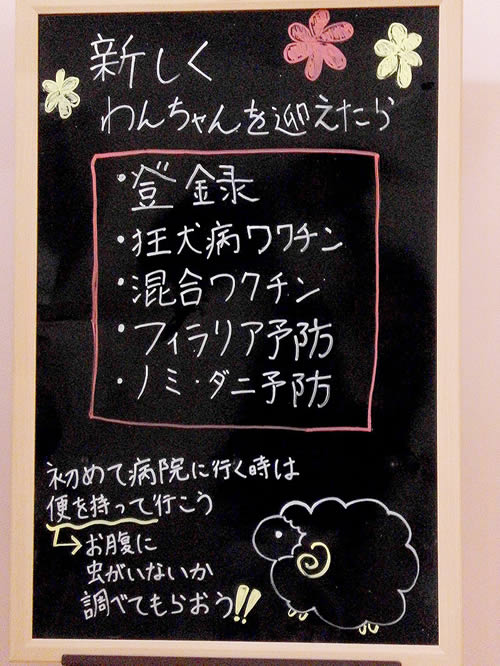 新しく
わんちゃんを迎えたら
・登録
・狂犬病ワクチン
・混合ワクチン
・フィラリア予防
・ノミ・ダニ予防
初めて病院に行く時は
便を持って行こう
→お腹に
虫がいないか
調べてもらおう!!